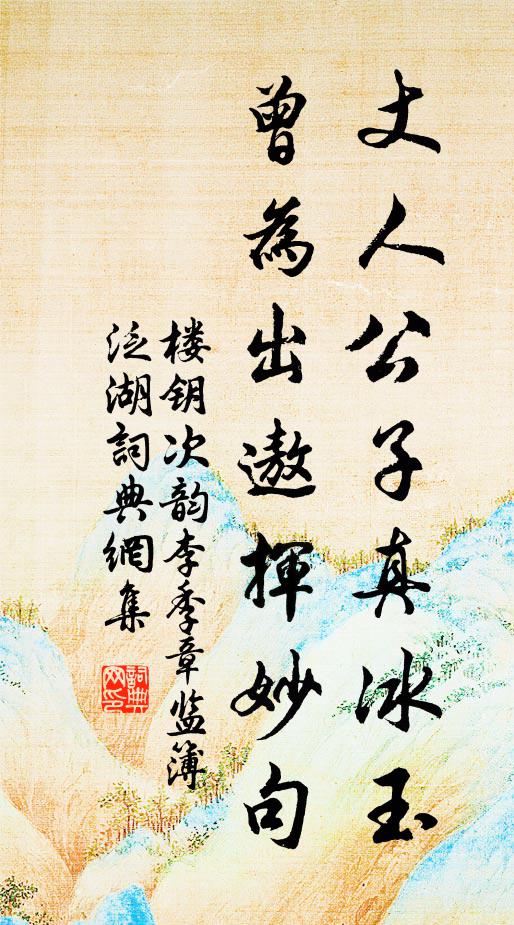 丈人公子真冰玉
曾為出遨揮妙句
楼钥次韵李季章监簿
泛湖詞典網集
詞典
网印